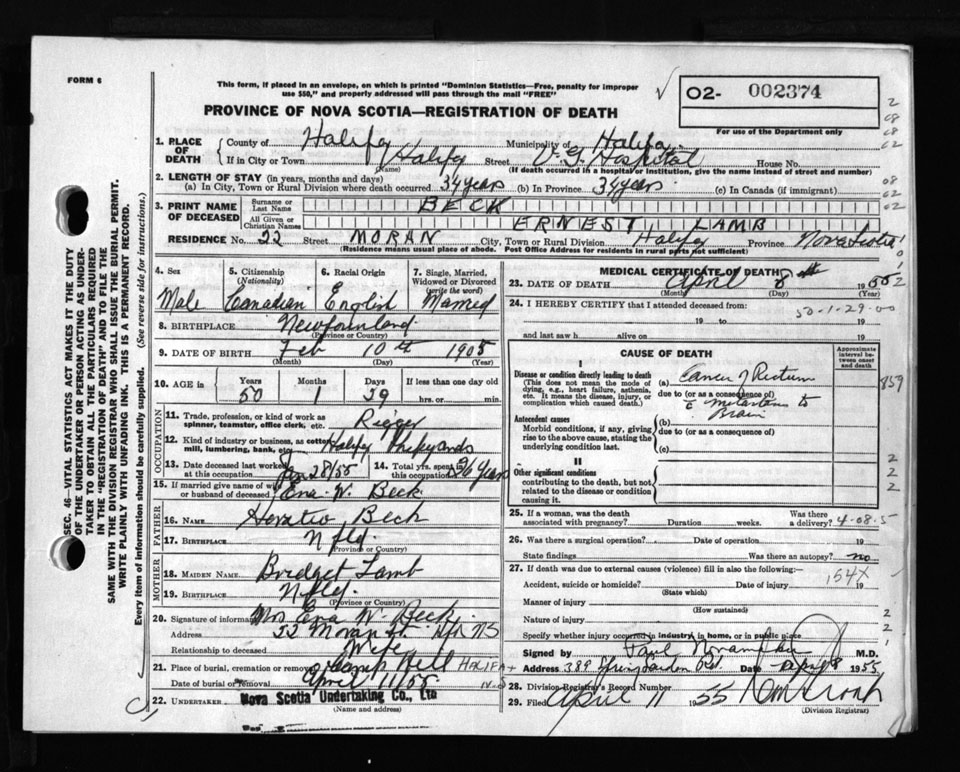 FORM 6
This form, if placed in an envelope, on which is printed "Dominion Statistics—Free, penalty for improper
use $50," and properly addressed will pass through the mail "FREE"
PROVINCE OF NOVA SCOTIA—REGISTRATION OF DEATH
O2- 002374
For use of the Department only
1. PLACE OF DEATH
County of Halifax Municipality of Halifax
If in City or Town Halifax Street V.G. Hospital House No.
(Name) (If death occurred in a hospital or institution, give the name instead of street and number)
2. LENGTH OF STAY (in years, months and days)
(a) In City, Town or Rural Division where death occurred 34 years (b) In Province 34 years (c) In Canada (if immigrant)
3. PRINT NAME OF DECEASED
Surname or Last Name BECK
All Given or Christian Names ERNEST LAMB
RESIDENCE No. 22 Street MORAN City, Town or Rural Division Halifax Province Nova Scotia
(Residence means usual place of abode. Post Office Address for residents in rural parts not sufficient)
4. Sex Male
5. Citizenship (Nationality) Canadian
6. Racial Origin English
7. Single, Married, Widowed or Divorced (write the word) Married
8. BIRTHPLACE Newfoundland
(Province or Country)
9. DATE OF BIRTH Feb 10th 1905
(Month) (Day) (Year)
10. AGE in Years 50 Months 1 Days 29 If less than one day old hrs. or min.
OCCUPATION
11. Trade, profession, or kind of work as spinner, teamster, office clerk, etc. Rigger
12. Kind of industry or business, as cotton mill, lumbering, bank, etc. Halifax Shipyards
13. Date deceased last worked at this occupation Jan 28/55
14. Total yrs. spent in this occupation 26 Years
15. If married give name of wife or husband of deceased Ena W. Beck
FATHER
16. NAME Horatio Beck
17. BIRTHPLACE Nfld.
(Province or Country)
MOTHER
18. MAIDEN NAME Bridget Lamb
19. BIRTHPLACE Nfld.
(Province or Country)
20. Signature of informant Mrs Ena W. Beck
Address 22 Moran St. Hfx NS
Relationship to deceased Wife
21. Place of burial, cremation or removal Camp Hill HALIFAX
Date of burial or removal April 11/55 N.S
22. UNDERTAKER Nova Scotia Undertaking Co., Ltd
(Name and address)
MEDICAL CERTIFICATE OF DEATH
23. DATE OF DEATH April 8th 1955
(Month) (Day) (Year)
24. I HEREBY CERTIFY that I attended deceased from:
50-1-29-00
19 to 19
and last saw h alive on 19
CAUSE OF DEATH
Approximate interval between onset and death
I
Disease or condition directly leading to death (a) Cancer of Rectum
(This does not mean the mode of dying, e.g., heart failure, asthenia, etc. It means the disease, injury, or complication which caused death.)
due to (or as a consequence of)
c̄ metastasis to Brain
859
Antecedent causes (b)
Morbid conditions, if any, giving rise to the above cause, stating the underlying condition last.
due to (or as a consequence of)
(c)
II
Other significant conditions
contributing to the death, but not related to the disease or condition causing it.
25. If a woman, was the death associated with pregnancy? Duration weeks. Was there a delivery? 4-08-5
26. Was there a surgical operation? Date of operation 19
State findings Was there an autopsy? no
27. If death was due to external causes (violence) fill in also the following:— 154X
Accident, suicide or homicide? Date of injury 19
(State which)
Manner of injury
(How sustained)
Nature of injury
Specify whether injury occurred in industry, in home, or in public place
Signed by Paul M.D.
Address 389 Spring Garden Rd. Date April 8 1955
28. Division Registrar's Record Number
29. Filed April 11 1955
(Division Registrar)
SEC. 46—VITAL STATISTICS ACT MAKES IT THE DUTY
OF THE UNDERTAKER OR PERSON ACTING AS UNDER-
TAKER TO OBTAIN ALL THE PARTICULARS REQUIRED
IN THE "REGISTRATION OF DEATH" AND TO FILE THE
SAME WITH THE DIVISION REGISTRAR WHO SHALL ISSUE THE BURIAL PERMIT.
WRITE PLAINLY WITH UNFADING INK. THIS IS A PERMANENT RECORD.
Every item of information should be carefully supplied. (See reverse side for instructions.)